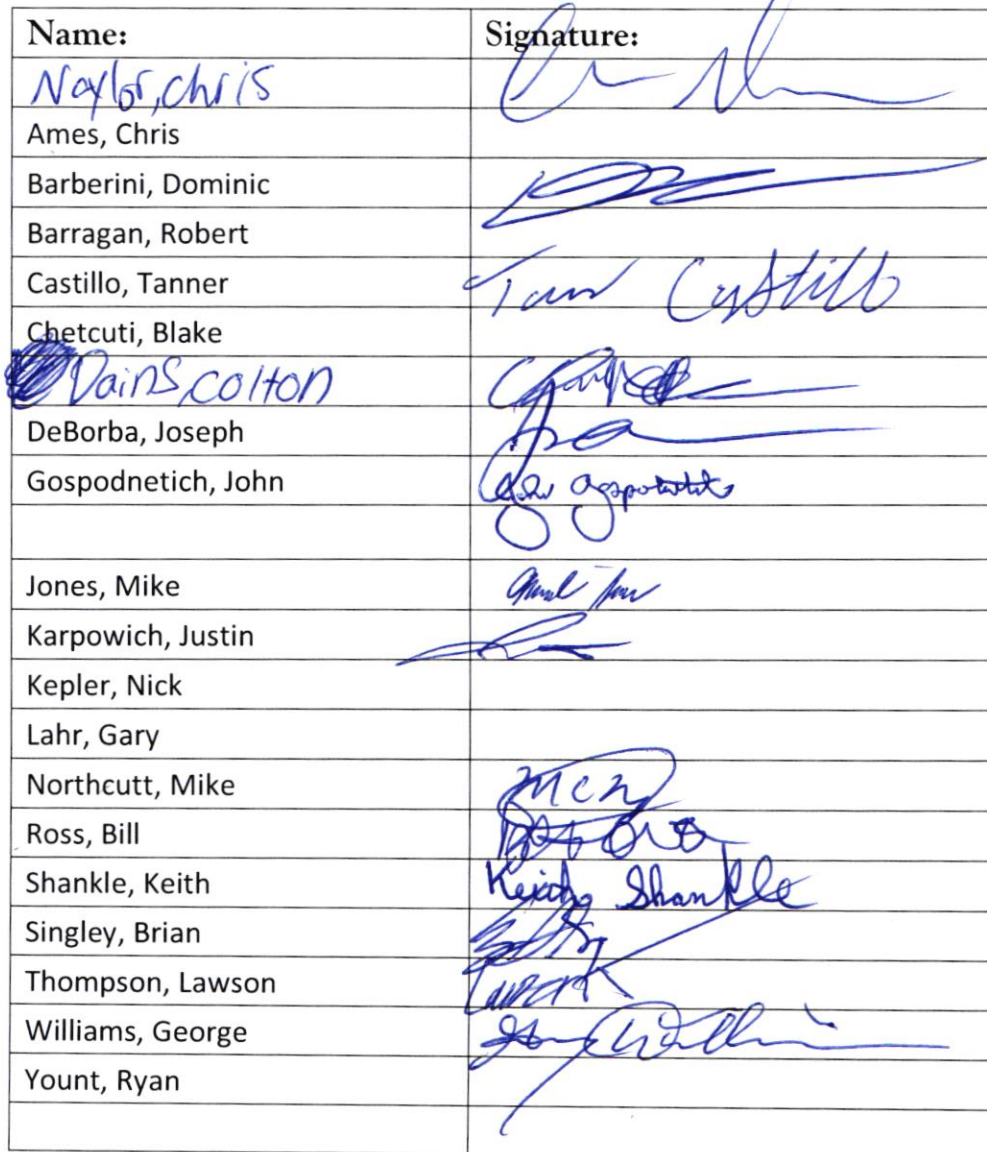 Name: Signature:
Naylor, Chris
Ames, Chris
Barberini, Dominic
Barragan, Robert
Castillo, Tanner Castillo
Chetcuti, Blake
Dains, Colton
DeBorba, Joseph
Gospodnetich, John
Jones, Mike
Karpowich, Justin
Kepler, Nick
Lahr, Gary
Northcutt, Mike mcn
Ross, Bill
Shankle, Keith Keith Shankle
Singley, Brian
Thompson, Lawson
Williams, George
Yount, Ryan